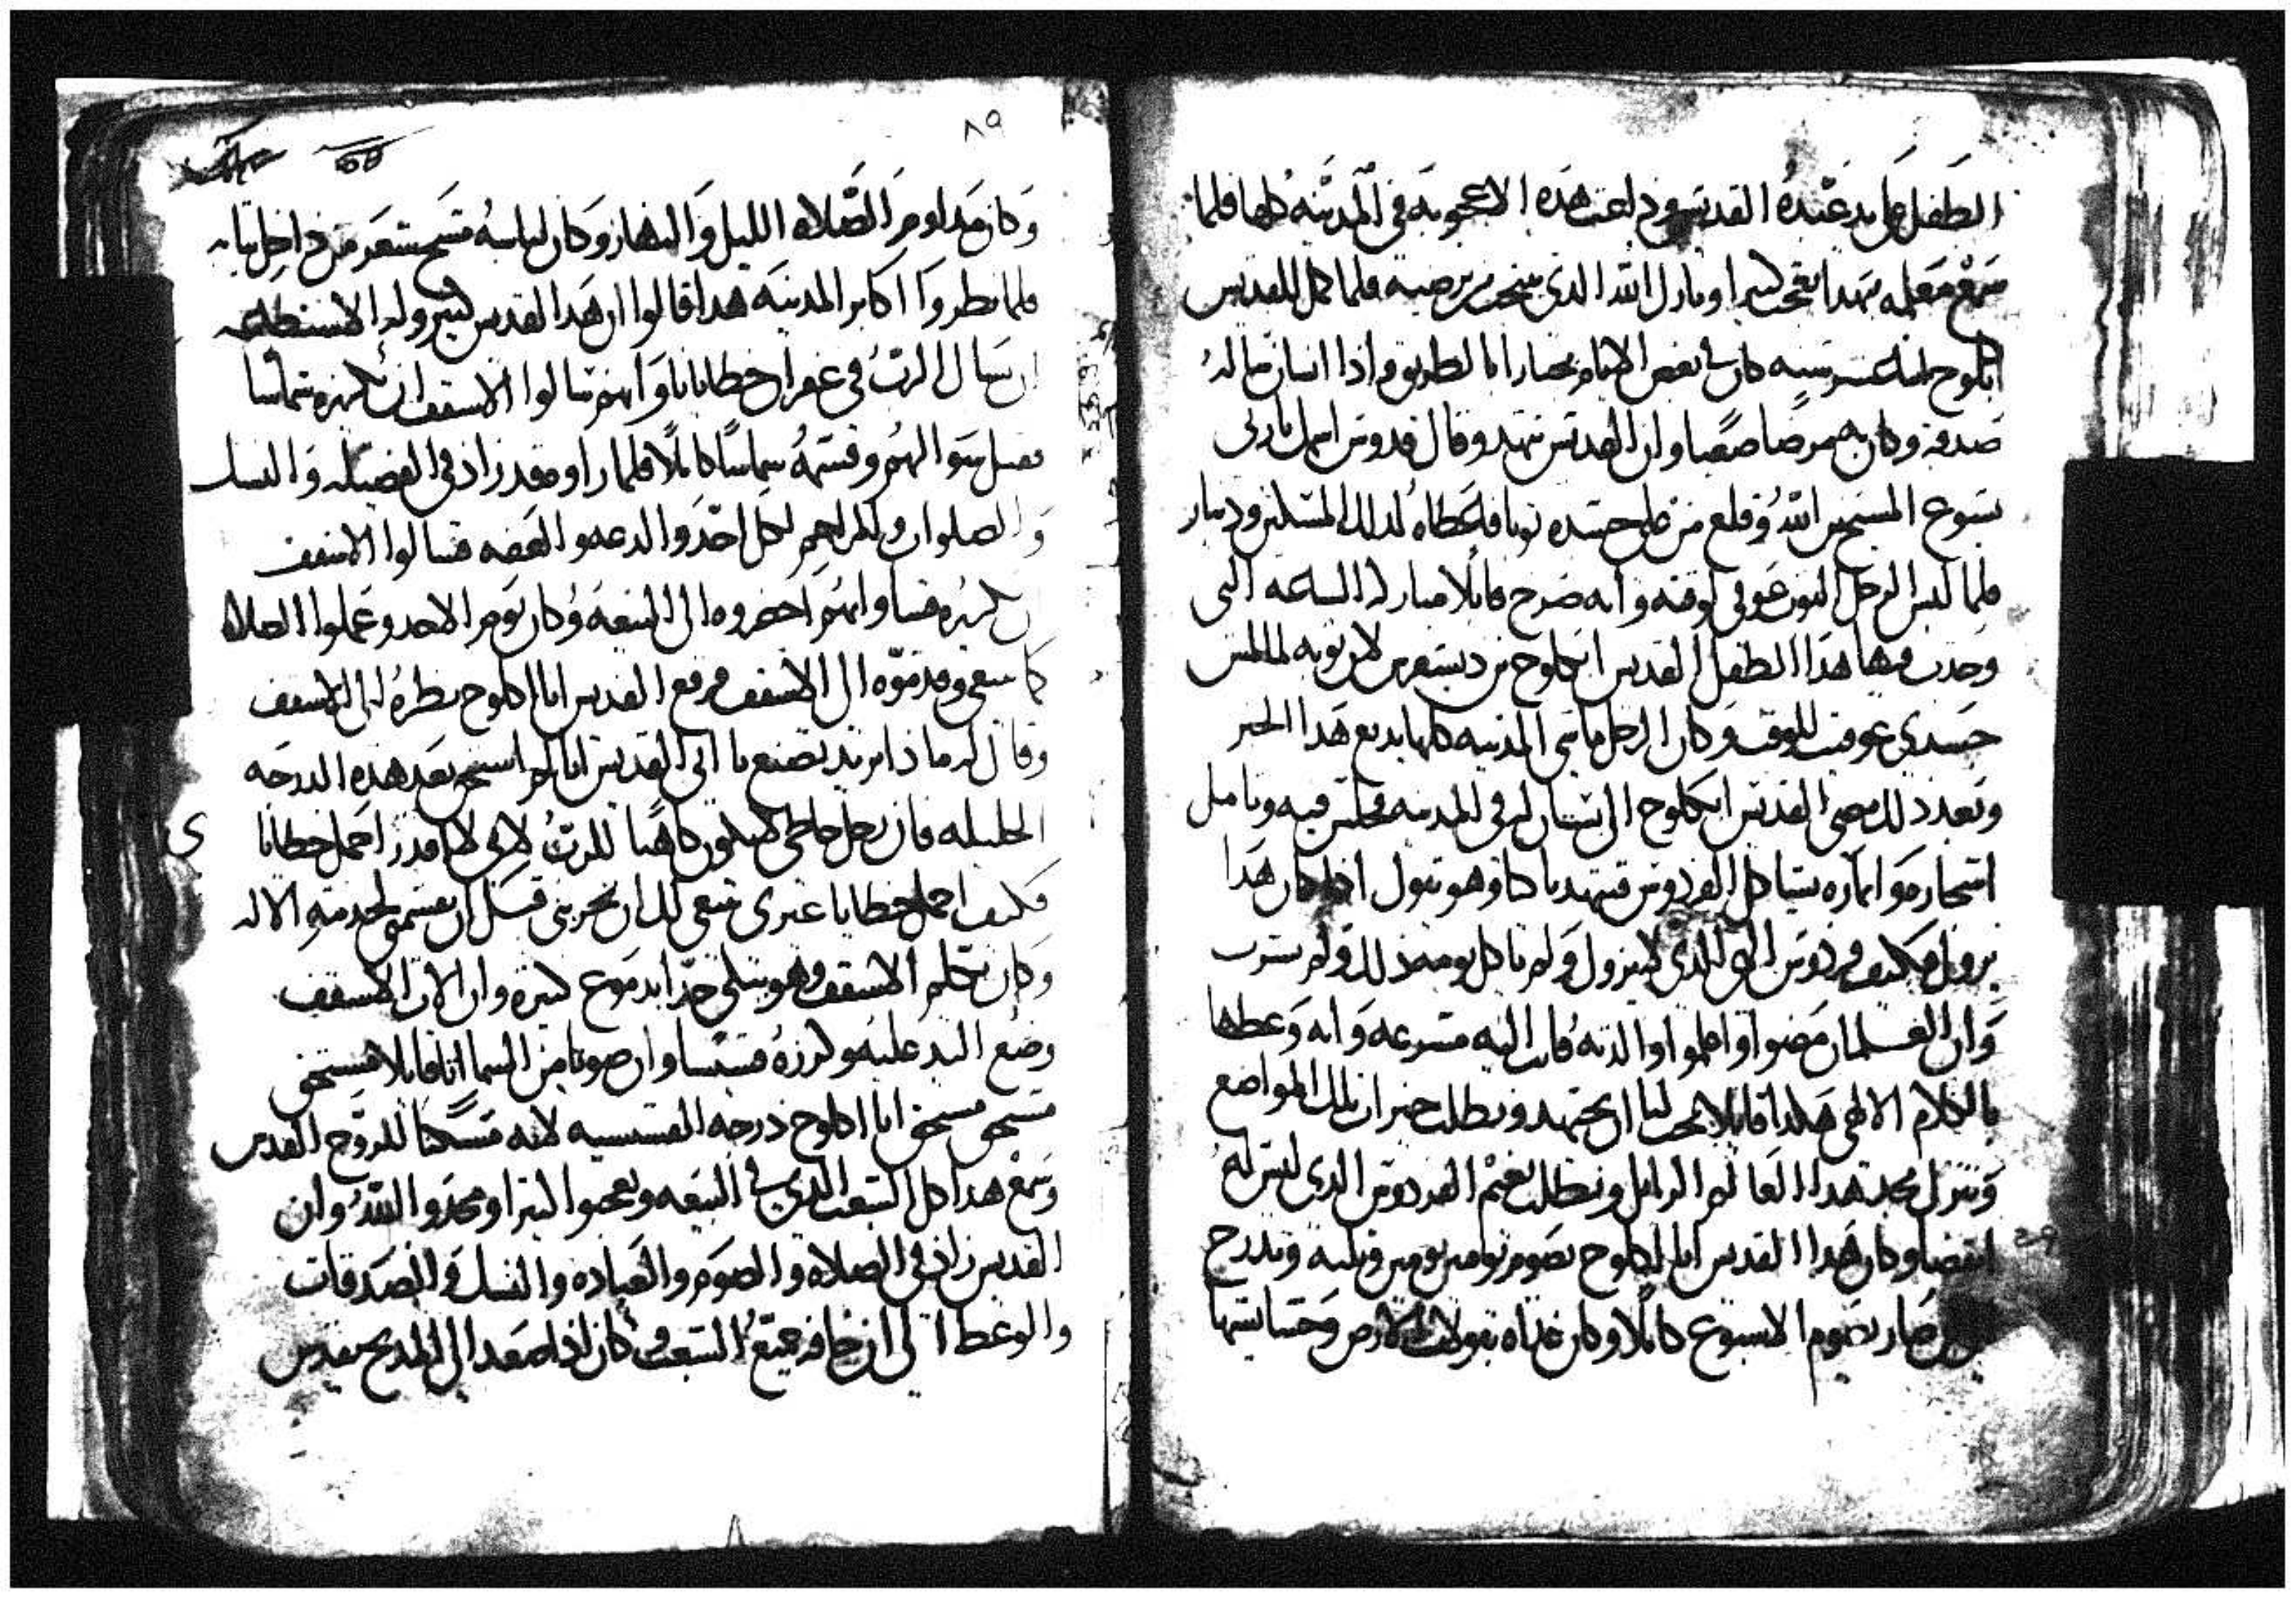 الطفل على يد عبده القديس وذاعت هذه الاعجوبه في المدينه كلها فلما
سمع معلمه بهدا تعجب كثيرا وبارك الله الدي
ابكلوج سنه كان في بعض الايام بالطريق واذا انسان
صدقه وكان به مرضا صعبا وان القديس تنهد وقال قدوس
يسوع المسيح ابن الله وقلع من على جسده توبا فاعطاه لدلك المسكين
فلما لبس الرجل التوب عوفي لوقته وانه صرخ قايلا مباركه الساعه التي
وجدت فيها هدا الطفل القديس ابكلوج لان توبه لما لمس
جسدي عوفيت للوقت وكان الرجل ماشي المدينه كلها يديع هدا الخبر
وبعد دلك مضى القديس ابكلوج الى بستان له في المدينه فجلس فيه وتامل
اشجاره واتماره الفردوس فتنهد باكيا وهو يقول ادا كان هدا
يزول فكيف فردوس الهي الدي لا يزول ولم ياكل يومه دلك ولم يشرب
وان الغلمان مضوا واعلموا والدته فاتت اليه مسرعه وانه وعظها
بالكلام الالهي هكدا قايلا يجب لنا ان نجتهد ونطلب خيرات تلك المواضع
ونترك مجد هدا العالم الزايل ونطلب نعيم الفردوس الدي ليس له
انقضا وكان هدا القديس ابا ابكلوج يصوم يومين يومين وتلته وتدرج
صار يصوم الاسبوع كاملا وكان غداه بقولات الارض وحشايشها
٨٩
وكان مداوم الصلاه الليل والنهار وكان لباسه مسح شعر من داخل تيابه
فلما نظروا اكابر المدينه هدا قالوا ان هدا القديس كبير وله الاستطاعه
ان يسال الرب في غفران خطايانا وانهم سالوا الاسقف ان يكرزه شماسا
فقبل سوالهم وقسمه شماسا كاملا فلما راوه قد زاد في الفضيله والنسك
والصلوات والمراحم لكل احد والدعه والعفه فسالوا الاسقف
يكرزه قسا وانهم احضروه الى البيعه وكان يوم الاحد وعملوا الصلاه
كما ينبغي وقدموه الى الاسقف فرفع القديس ابا ابكلوج نظره الى الاسقف
وقال له ماذا تريد تصنع يا ابي القديس انا لم استحق بعد هده الدرجه
الجليله فان رجل خاطي لا يكون كاهنا للرب لاني لا اقدر احمل خطايا
فكيف احمل خطايا غيري ينبغي لك ان تجربني قبل ان تقسمني لخدمة الاله
وكان يكلم الاسقف وهو يبكي جدا بدموع كتيره وان الاب الاسقف
وضع اليد عليه وكرزه قسيسا وان صوتا من السما اتا قايلا مستحق
مستحق مستحق ابا ابكلوج درجه القسيسيه لانه مسكنا للروح القدس
وسمع هدا كل الشعب الدي في البيعه وتعجبوا كتيرا ومجدوا الله وان
القديس زاد في الصلاه والصوم والعباده والنسك والصدقات
والوعظ الى ان خافه جميع الشعب وكان اذا صعد الى المدبح يقدس